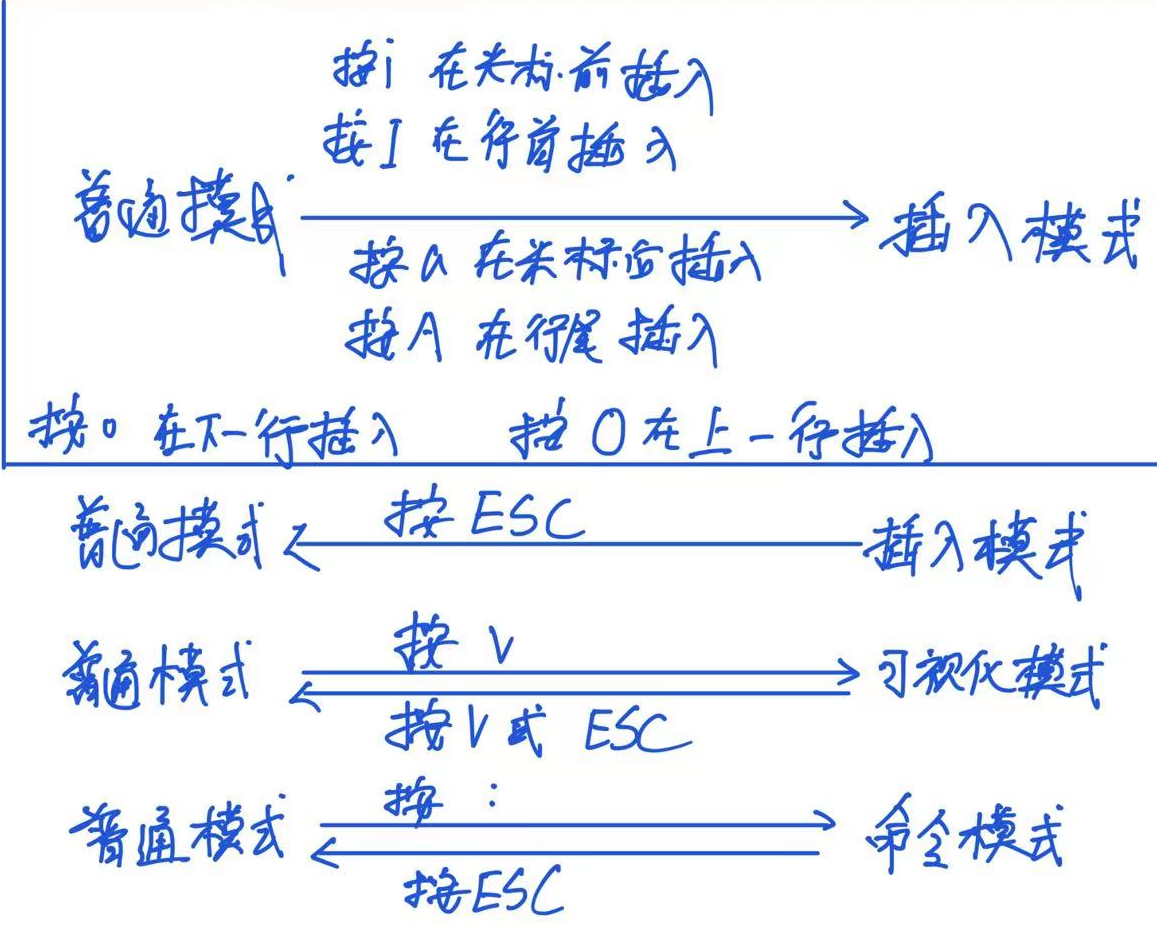 按i 在光标前插入
按I 在行首插入
普通模式 插入模式
按a 在光标后插入
按A 在行尾插入
按o 在下一行插入 按O在上一行插入
按ESC
普通模式 插入模式
按 V
普通模式 可视化模式
按V或 ESC
按 :
普通模式 命令模式
按ESC